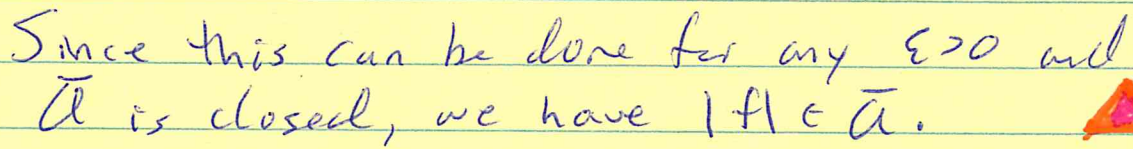 Since this can be done for any ε>0 and
Ā is closed, we have |f| ∈ Ā.